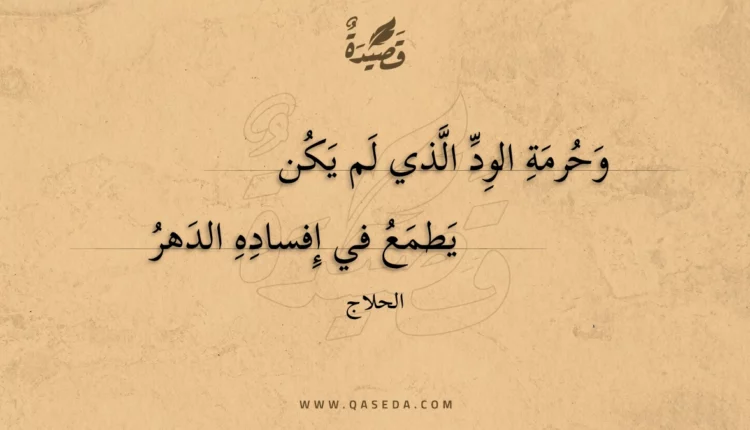 قَصِيْدَةٌ
وَحُرمَةِ الوِدِّ الَّذي لَم يَكُن
يَطمَعُ في إِفسادِهِ الدَهرُ
الحلاج
WWW.QASEDA.COM